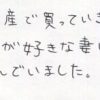 産で買っていき
が好きな妻に
んでいました。